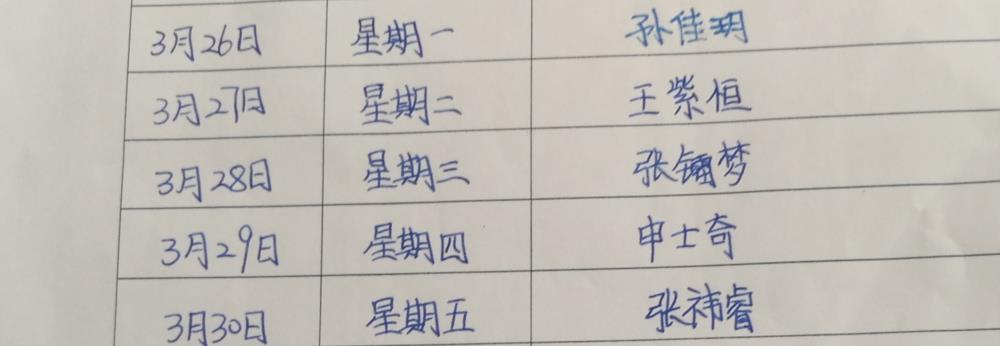 3月26日 星期一 孙佳玥
3月27日 星期二 王紫恒
3月28日 星期三 张梦
3月29日 星期四 申士奇
3月30日 星期五 张祎睿